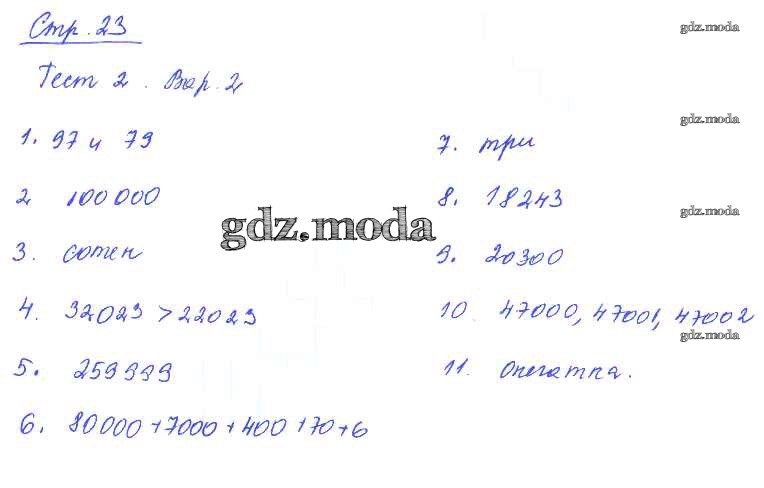 Стр. 23
gdz.moda
Тест 2. Вар. 2
gdz.moda
1. 97 и 79
2 100 000
3. сотен
4. 32023 > 22023
5. 259999
6. 80000 + 7000 + 400 + 70 + 6
gdz.moda
7. три
8. 18243
gdz.moda
9. 20300
10. 47000, 47001, 47002
gdz.moda
11. Опечатка.